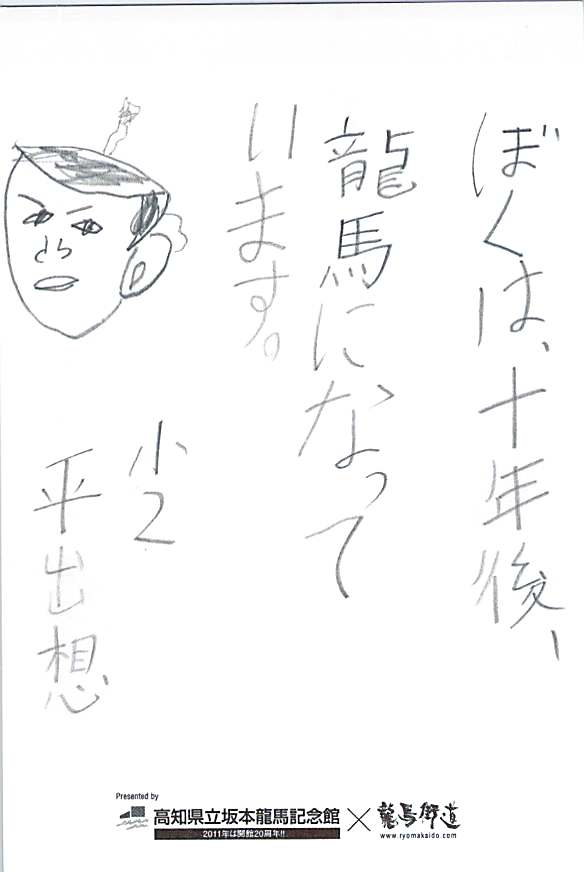 ぼくは、十年後、
龍馬になって
います。
小2
平出想
Presented by
高知県立坂本龍馬記念館×龍馬街道
2011年は開館20周年!!
www.ryomakaido.com